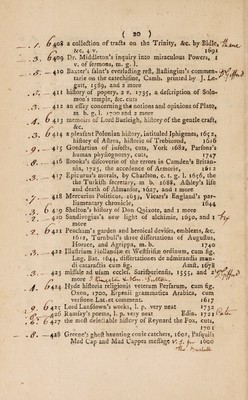 ( 20 )
6408 a collection of tracts on the Trinity, &c. by Bidle,
&c. 4 v. 1691
6409 Dr. Middleton's inquiry into miraculous Powers, 1
v. of sermons, m. g. l.
410 Baxter's saint's everlasting rest, Bastingius's commen-
tarie on the catechisme, Camb. printed by J. Le-
gatt, 1589, and 2 more
411 history of popery, 2 v. 1735, a description of Solo-
mon's temple, &c. cuts
412 an essay concerning the notions and opinions of Plato,
m. b. g. l. 1700 and 2 more
6413 memoirs of Lord Burleigh, history of the gentle craft,
&c.
6414 a pleasant Polonian history, intituled Sphigenus, 1652,
history of Astrea, historie of Trebizond, 1616
415 Goodartius of insects, cuts, York 1682, Parsons's
human physiognomy, cuts, 1747
416 Brooks's discoverie of the errors in Camden's Britan-
nia, 1723, the accedence of Armorie, 1612
417 Epicurus's morals, by Charlton, c. t. g. l. 1656, the
the Turkish secretary, m. b. 1688, Athley's life
and death of Almansor, 1627, and 1 more
418 Mercurius Politicus, 1653, Vicars's England's par-
liamentary chronicle, 1644
6419 Shelton's history of Don Quixote, and 1 more
420 Sandivogius's new light of alchimie, 1650, and 1
more
6421 Peacham's garden and heroical devises, emblems, &c.
1612, Turnbull's three dissertations of Augustus,
Horace, and Agrippa, m. b. 1740
422 Illustrium Hollandiae et Westfrisiae ordinum, cum fig.
Lug. Bat. 1644, dissertationes de admirandis mun-
di cataractis cum fig. Amst. 1678
423 missale ad usum eccles. Sarisburiensis, 1555, and 2
more
6424 Hyde historia religionis veterum Persarum, cum fig.
Oxon, 1700, Erpenii grammatica Arabica, cum
versione Lat. et comment. 1617
6425 Lord Lansdown's works, l. p. very neat 1732
6426 Ramsay's poems, l. p. very neat Edin. 1731
6427 the most delectable history of Reynard the Fox, cuts,
1701
428 Greene's ghost haunting conie catchers, 1602, Pasquils
Mad Cap and Mad Cappes message 1600